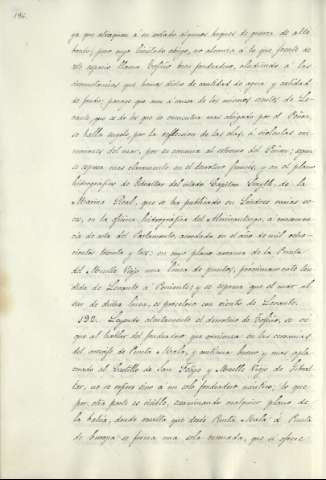 182.
ya que atraquen á su costado algunos buques de guerra de alto
bordo; pero cuyo limitado abrigo, no alcanza á lo que frente de
este espacio llama Tofiño buen fondeadero, aludiendo á las
circunstancias que hemos dicho de cantidad de agua y calidad
de fondo; porque aun á causa de los mismos vientos de Le-
vante, que es de los que se encuentra mas abrigado por el Peñon,
se halla sugeto, por la reflexion de las olas, á violentas con-
mociones del mar, por su cercania al estremo del Peñon; segun
se espresa mas claramente en el derrotero francés, y en el plano
hidrográfico de Gibraltar del citado Capitan Smyth, de la
Marina Real, que se ha publicado en Londres varias ve-
ces, en la oficina hidrográfica del Almirantazgo, á consecuen-
cia de acta del Parlamento, acordada en el año de mil ocho-
cientos treinta y tres; en cuyo plano arranca de la Punta
del Muelle Viejo una línea de puntos, proximamente ten-
dida de Levante á Poniente; y se espresa que el mar al
sur de dicha línea, es peligroso con viento de Levante.
192. Leyendo atentamente el derrotero de Tofiño, se vé
que al hablar del fondeadero que comienza en las cercanias
del arrecife de Punta Mala, y continua bueno y mas apla-
cerado al Castillo de San Felipe y Muelle Viejo de Gibral-
tar, no se refiere sino á un solo fondeadero náutico; lo que
por otra parte es visible, examinando cualquier plano de
la bahía, donde resulta que desde Punta Mala á Punta
de Europa se forma una sola ensenada, que si ofrece